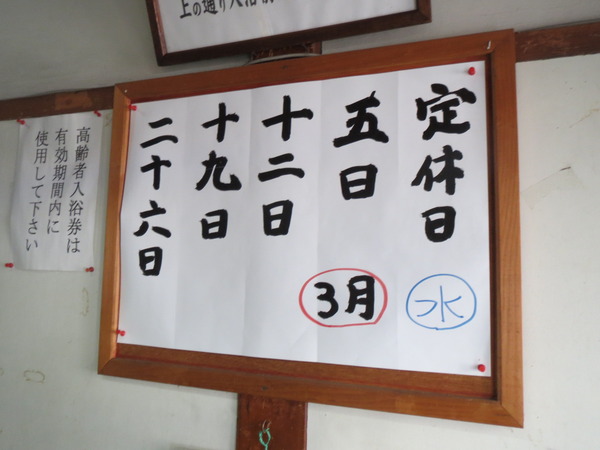 上の通り入浴
定休日
水
五日
3月
十二日
十九日
二十六日
高齢者入浴券は
有効期間内に
使用して下さい